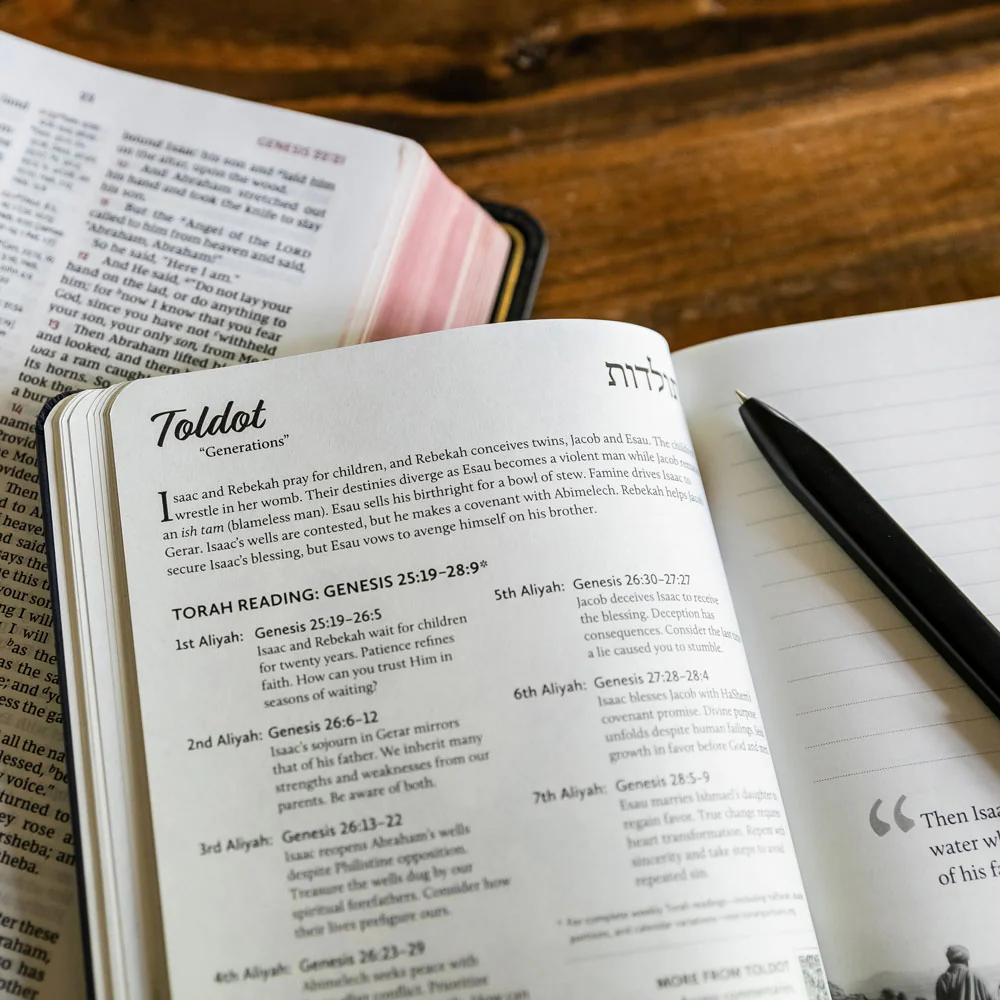 GENESIS 22:21
bound Isaac his son and laid him
on the altar, upon the wood.
10 And Abraham stretched out
his hand and took the knife to slay
his son.
11 But the Angel of the LORD
called to him from heaven and said,
"Abraham, Abraham!"
So he said, "Here I am."
12 And He said, "Do not lay your
hand on the lad, or do anything to
him; for now I know that you fear
God, since you have not withheld
your son, your only son, from Me."
13 Then Abraham lifted his
and looked, and there
was a ram caught
its horns. So
took the
a burn
14
name
Provid
the Mo
ovided
Then
d to A
heave
nd said
says the
e this t
your son
ng I will
I will
as the
as the sa
e; and
ess the ga
all the na
lessed,
voice."
turned to
ey rose a
rsheba; an
heba.
ter these
raham,
so has
other
Toldot
תולדות
"Generations"
Isaac and Rebekah pray for children, and Rebekah conceives twins, Jacob and Esau. The
wrestle in her womb. Their destinies diverge as Esau becomes a violent man while Jacob
an ish tam (blameless man). Esau sells his birthright for a bowl of stew. Famine drives Isaac to
Gerar. Isaac's wells are contested, but he makes a covenant with Abimelech. Rebekah helps Jacob
secure Isaac's blessing, but Esau vows to avenge himself on his brother.
TORAH READING: GENESIS 25:19–28:9*
1st Aliyah: Genesis 25:19–26:5
Isaac and Rebekah wait for children
for twenty years. Patience refines
faith. How can you trust Him in
seasons of waiting?
2nd Aliyah: Genesis 26:6–12
Isaac's sojourn in Gerar mirrors
that of his father. We inherit many
strengths and weaknesses from our
parents. Be aware of both.
3rd Aliyah: Genesis 26:13–22
Isaac reopens Abraham's wells
despite Philistine opposition.
Treasure the wells dug by our
spiritual forefathers. Consider how
their lives prefigure ours.
4th Aliyah: Genesis 26:23–29
Abimelech seeks peace with
conflict. Prioritize
5th Aliyah: Genesis 26:30–27:27
Jacob deceives Isaac to receive
the blessing. Deception has
consequences. Consider the last time
a lie caused you to stumble.
6th Aliyah: Genesis 27:28–28:4
Isaac blesses Jacob with HaShem's
covenant promise. Divine purpose
unfolds despite human failings.
growth in favor before God and
7th Aliyah: Genesis 28:5–9
Esau marries Ishmael's daughter
regain favor. True change requires
heart transformation. Repent with
sincerity and take steps to avoid
repeated sin.
* For complete weekly Torah readings—including
portions, and calendar variations—
MORE FROM TOLDOT
“ Then Isaa
water wh
of his fa